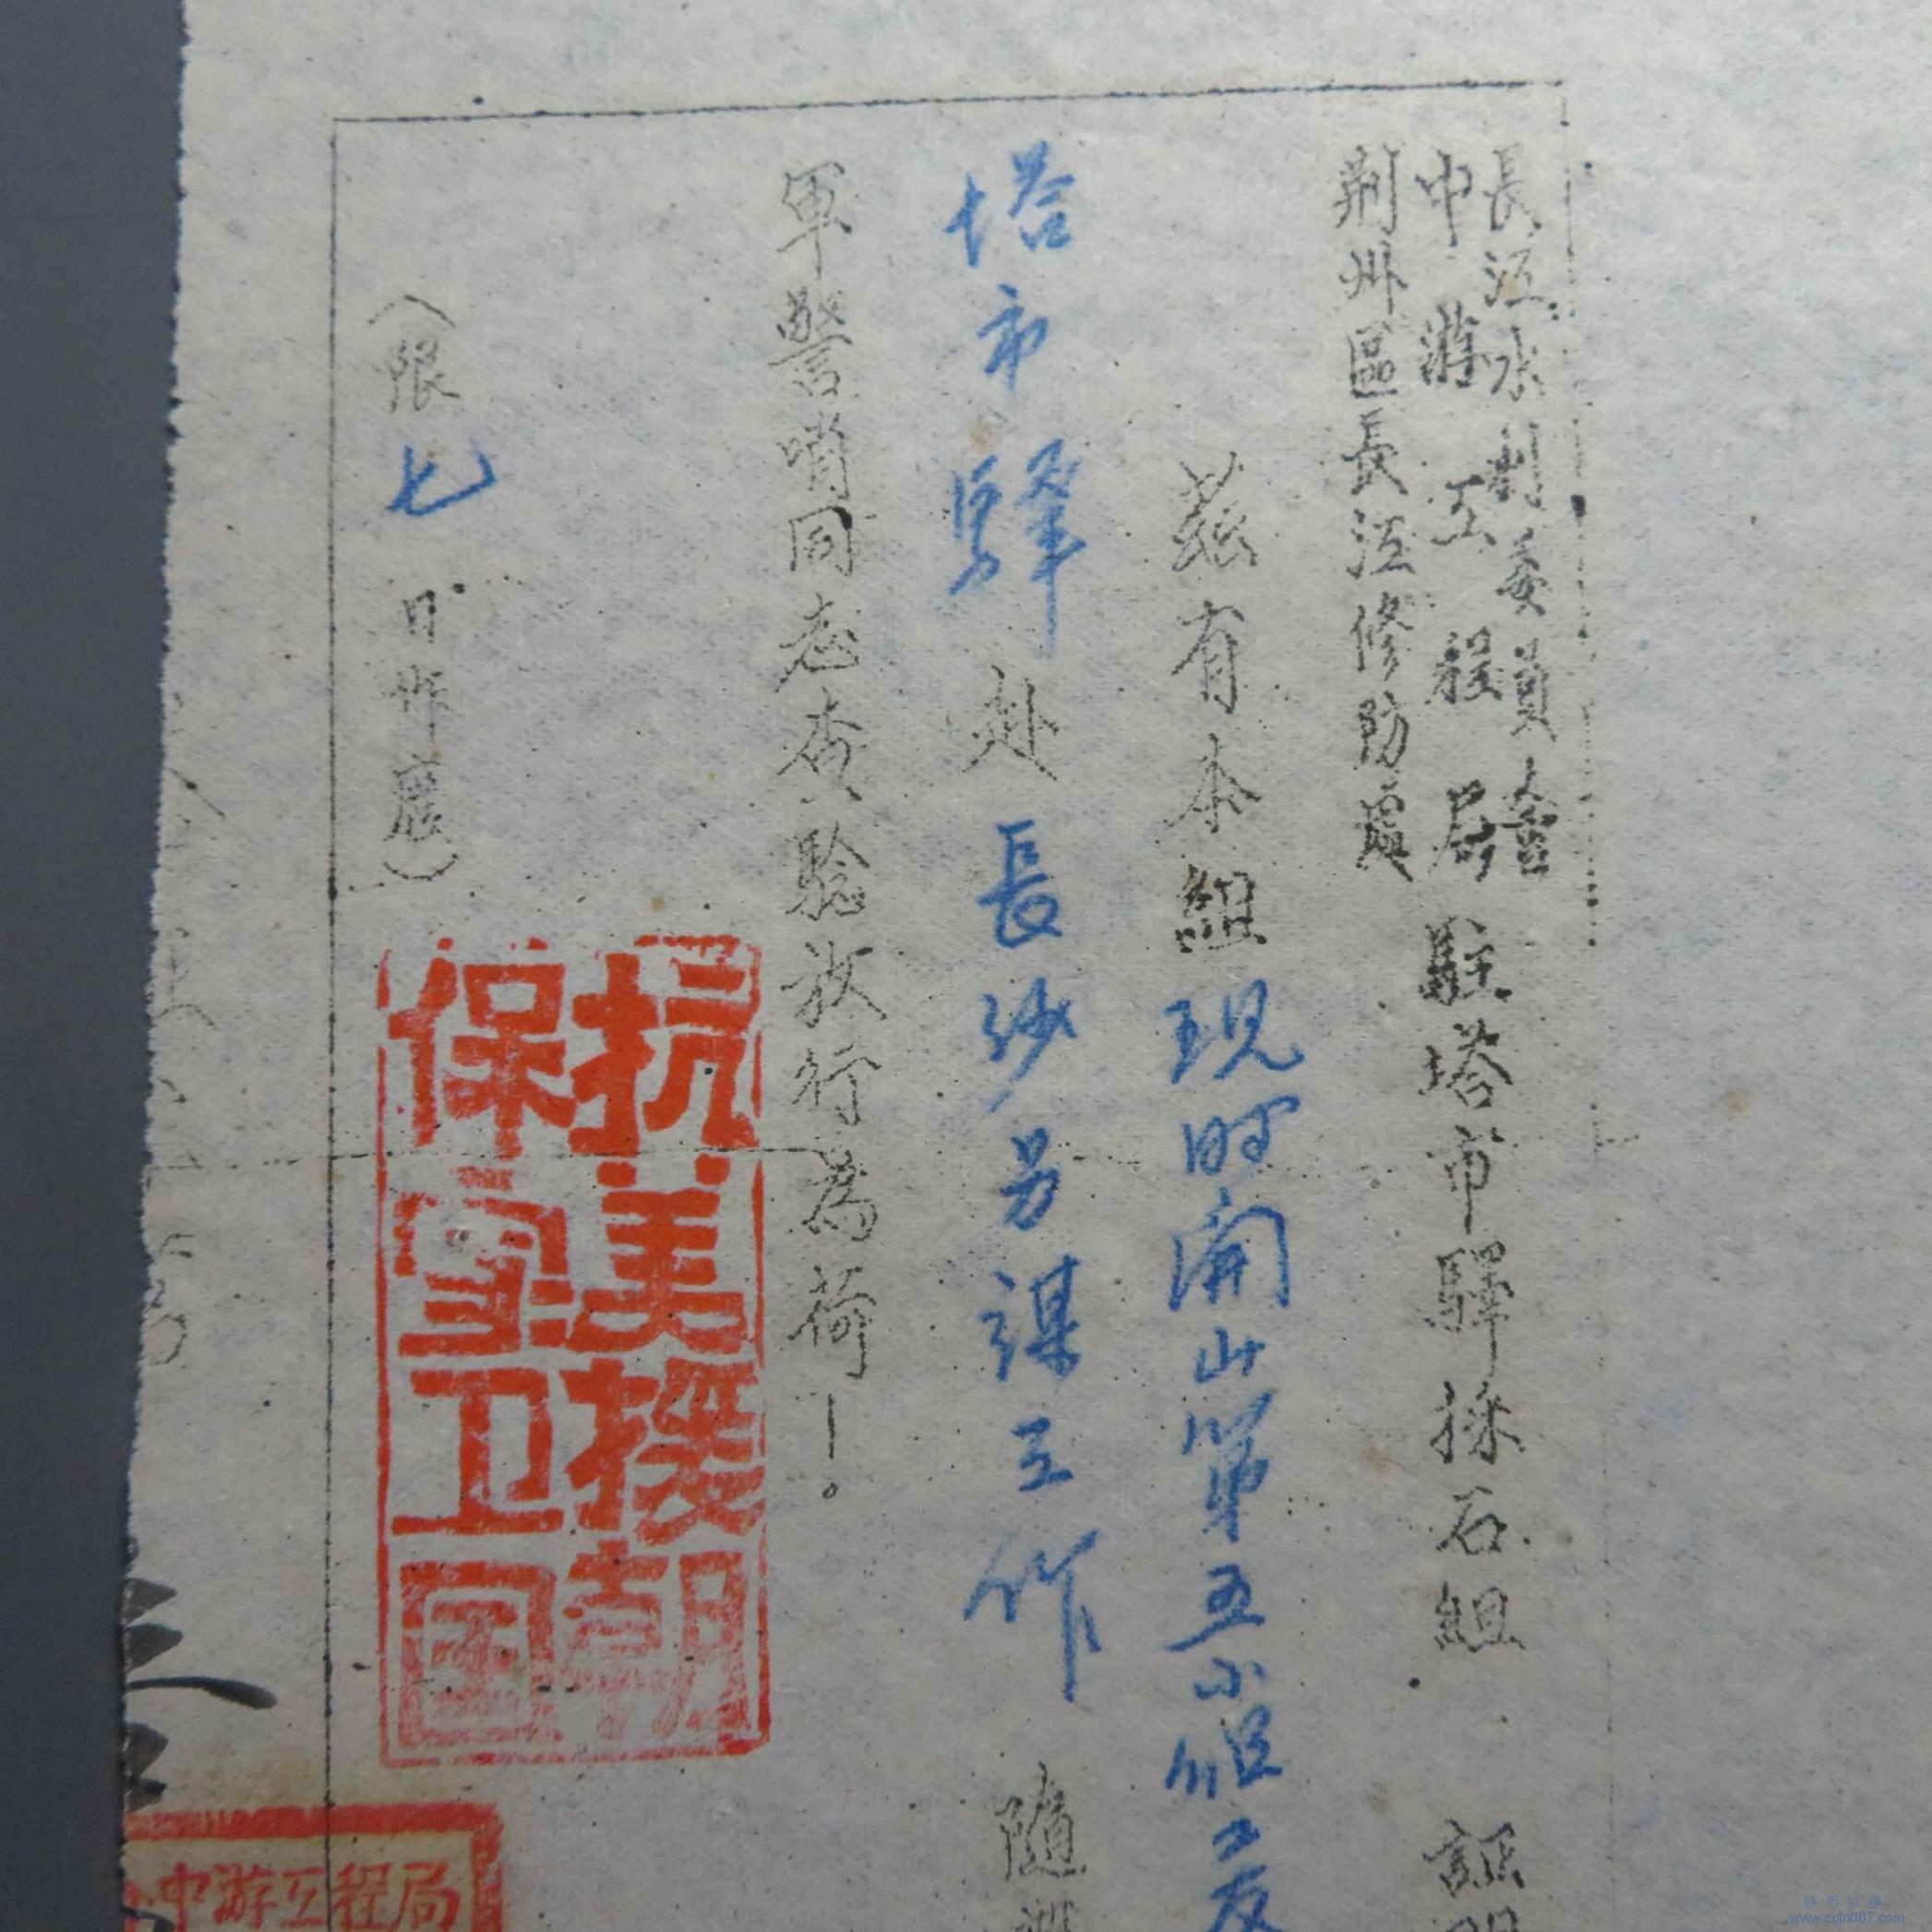 長江水利委員會
中游工程局
荆州區長江修防處
駐塔市驛採石組 証明
茲有本組现时開山第五小組工友
塔市驛赴長沙另謀工作 隨
軍警哨同志查驗放行為荷!。
(限七日作廢)
抗美援朝
保家卫国
中游工程局
www.coin007.com